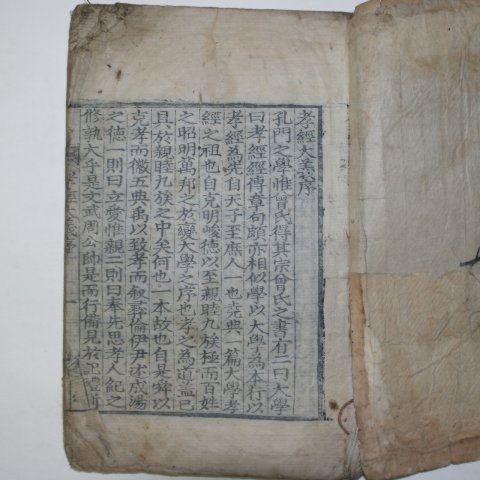 孝經大義序
孔門之學惟曾氏得其宗曾氏之書有二曰大學
曰孝經經傳章句頗亦相似學以大學為本行以
孝經為先自天子至庶人一也堯典一篇大學孝
經之祖也自克明峻德以至親睦九族極而百姓
之昭明萬邦之於變大學之序也孝之為道蓋已
具於親睦九族之中矣何也一本故也自是舜以
克孝而徽五典禹以致孝而敘彝倫伊尹述成湯
之德一則曰立愛惟親二則曰奉先思孝人紀之
修孰大乎是文武周公帥是而行備見於記禮所
孝經大義序